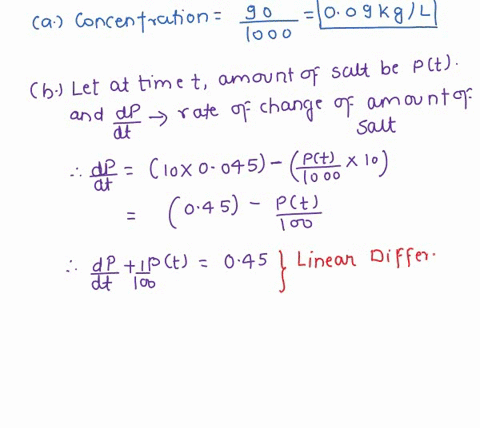 (a.) Concentration = 90/1000 = 0.09 kg/L
(b.) Let at time t, amount of salt be P(t).
and dP/dt → rate of change of amount of
salt
∴ dP/dt = (10 x 0.045) - (P(t)/1000 x 10)
= (0.45) - P(t)/100
∴ dP/dt + 1/100 P(t) = 0.45 } Linear Differ.